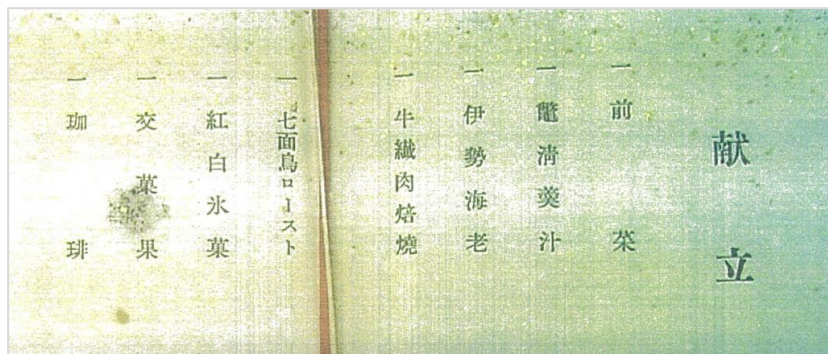 献立
一前菜
一鼈清羹汁
一伊勢海老
一牛繊肉焙燒
一七面鳥ロースト
一紅白氷菓
一交菓果
一珈琲